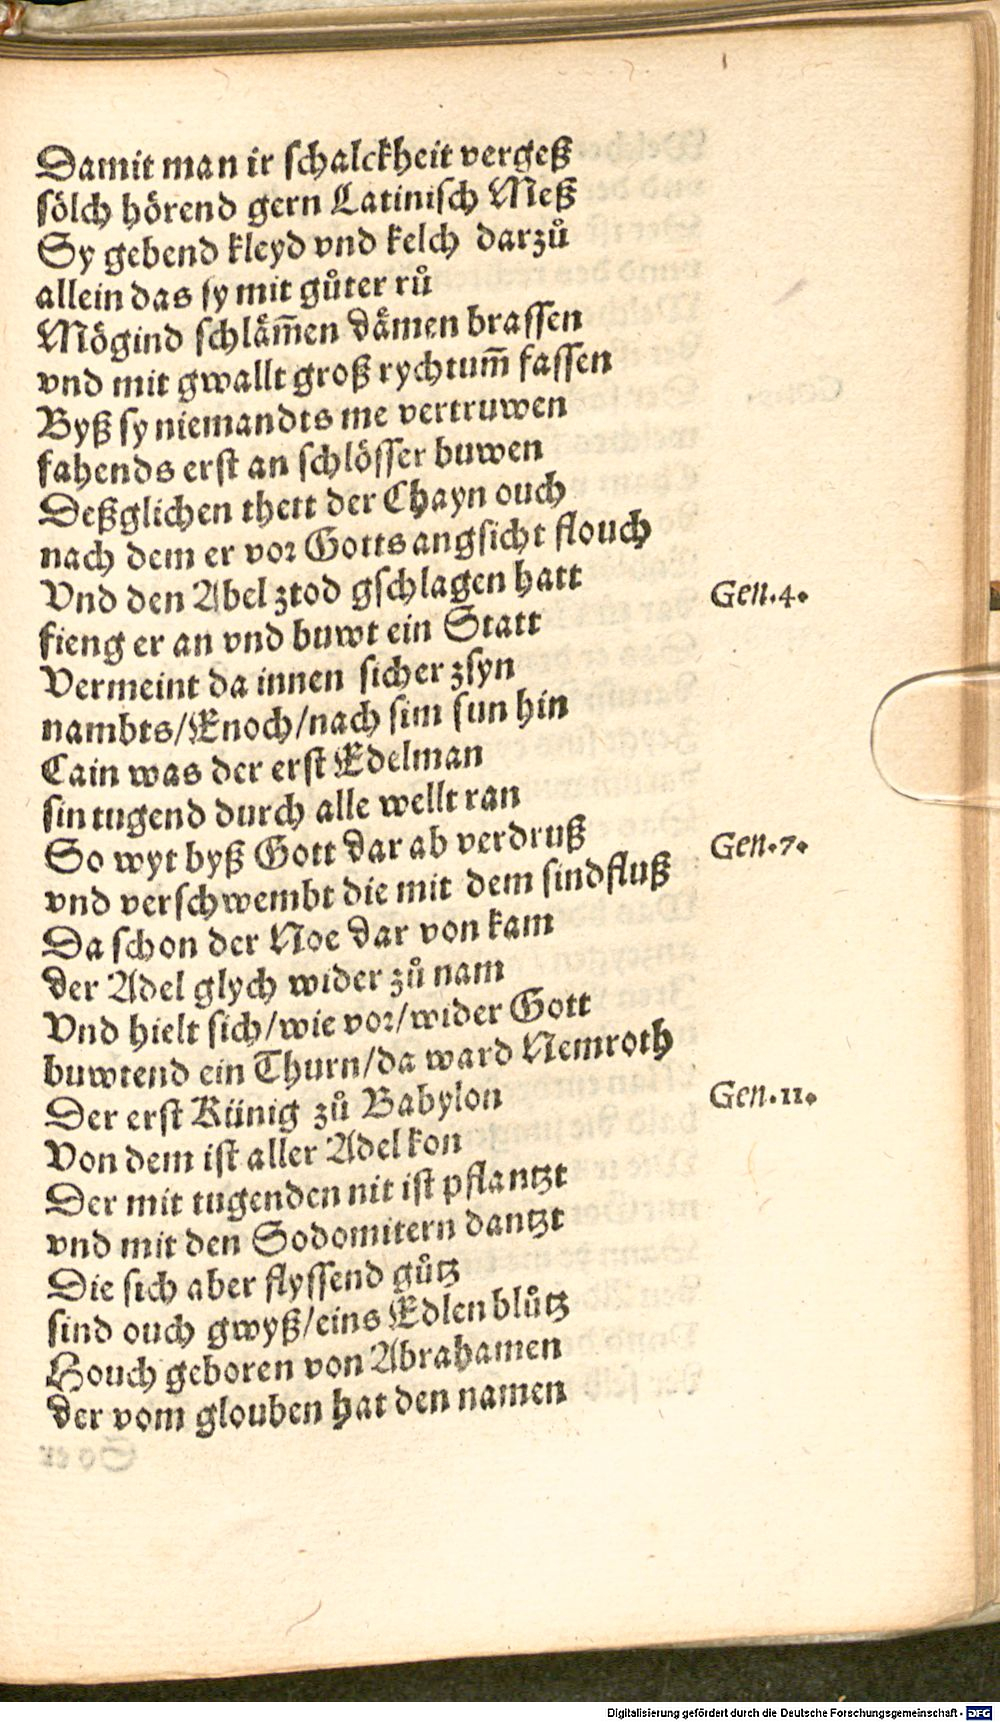 Damit man ir schalckheit vergeß
sölch hörend gern Latinisch Meß
Sy gebend kleyd vnd kelch darzů
allein das sy mit gůter rů
Mögind schläm̃en dämen brassen
vnd mit gwallt groß rychtum̃ fassen
Byß sy niemandts me vertruwen
fahends erst an schlösser buwen
Deßglichen thett der Chayn ouch
nach dem er vor Gotts angsicht flouch
Vnd den Abel ztod gschlagen hatt
Gen.4.
fieng er an vnd buwt ein Statt
Vermeint da innen sicher zsyn
nambts/Enoch/nach sim sun hin
Cain was der erst Edelman
sin tugend durch alle wellt ran
So wyt byß Gott dar ab verdruß
Gen.7.
vnd verschwembt die mit dem sindfluß
Da schon der Noe dar von kam
der Adel glych wider zů nam
Vnd hielt sich/wie vor/wider Gott
buwtend ein Thurn/da ward Nemroth
Der erst Künig zů Babylon
Gen.11.
Von dem ist aller Adel kon
Der mit tugenden nit ist pflantzt
vnd mit den Sodomitern dantzt
Die sich aber flyssend gůtz
sind ouch gwyß/eins Edlen blůtz
Houch geboren von Abrahamen
der vom glouben hat den namen
Digitalisierung gefördert durch die Deutsche Forschungsgemeinschaft - DFG